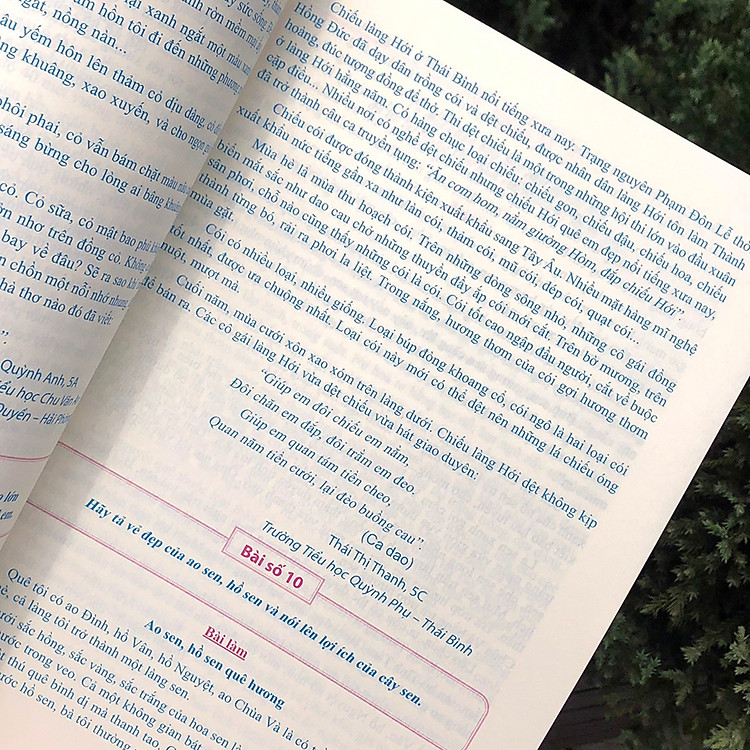 gắt, nồng nàn...
phôi phai, cỏ vẫn bám chặt màu nâu
sáng bừng cho lòng ai bâng khuâng
khuâng, xao xuyến, và cho ngọn
bay về đâu? Sẽ ra sao khi
chốn một nỗi nhớ nhung
hà thơ nào đó đã viết:
Quỳnh Anh, 5A
Tiểu học Chu Văn An
Quyền – Hải Phòng
Chiếu làng Hới ở Thái Bình nổi tiếng xưa nay. Trạng nguyên Phạm Đôn Lễ thời
Hồng Đức đã dạy dân trồng cói và dệt chiếu, được nhân dân làng Hới tôn làm Thành
hoàng, đúc tượng đồng để thờ. Thi dệt chiếu là một trong những hội thi lớn vào đầu xuân
ở làng Hới hằng năm. Có hàng chục loại chiếu: chiếu gon, chiếu đậu, chiếu hoa, chiếu
cạp điều... Nhiều nơi có nghề dệt chiếu nhưng chiếu Hới quê em đẹp nổi tiếng xưa nay,
đã trở thành câu ca truyền tụng: “Ăn cơm hom, nằm giường Hòm, đắp chiếu Hới”.
Chiếu cói được đóng thành kiện xuất khẩu sang Tây Âu. Nhiều mặt hàng mĩ nghệ
xuất khẩu nức tiếng gần xa như làn cói, thảm cói, mũ cói, dép cói, quạt cói...
Mùa hè là mùa thu hoạch cói. Trên những dòng sông nhỏ, những cô gái đồng
biển mắt sắc như dao cau chở những thuyền đầy ắp cói mới cắt. Trên bờ mương, trên
sân phơi, chỗ nào cũng thấy những cói là cói. Cỏ tốt cao ngập đầu người, cắt về buộc
thành từng bó, rải ra phơi la liệt. Trong nắng, hương thơm của cói gợi hương thơm
mùa gặt.
Cói có nhiều loại, nhiều giống. Loại búp dòng khoang cổ, cói ngõ là hai loại cói
tốt, nhất, được ưa chuộng nhất. Loại cói này mới có thể dệt nên những lá chiếu óng
nuột, mượt mà.
Cuối năm, mùa cưới xôn xao xóm trên làng dưới. Chiếu làng Hới dệt không kịp
để bán ra. Các cô gái làng Hới vừa dệt chiếu vừa hát giao duyên:
“Giúp em đôi chiếu em nằm,
Đôi chăn em đắp, đôi trằm em đeo.
Giúp em quan tám tiền cheo,
Quan năm tiền cưới, lại đèo buồng cau”.
(Ca dao)
Thái Thị Thanh, 5C
Trường Tiểu học Quỳnh Phụ – Thái Bình
Bài số 10
Hãy tả vẻ đẹp của ao sen, hồ sen và nói lên lợi ích của cây sen.
Bài làm
Ao sen, hồ sen quê hương
Quê tôi có ao Đình, hồ Vân, hồ Nguyệt, ao Chùa Và là có
cả làng tôi trở thành một làng sen.
sắc hồng, sắc vàng, sắc trắng của hoa sen
nước trong veo. Cả một không gian bát
thú quê bình dị mà thanh tao.
hồ sen, bà tôi thường